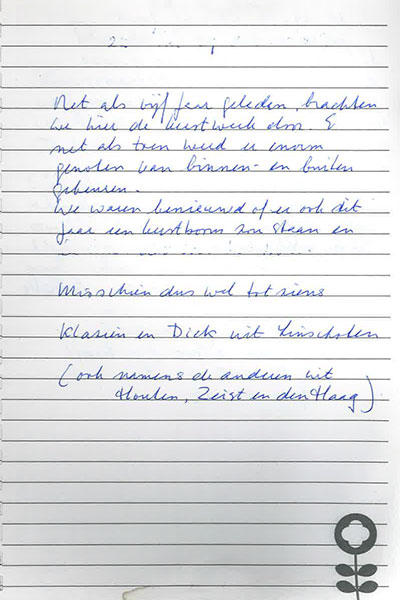 Net als vijf jaar geleden, brachten
we hier de kerstweek door. E
net als toen werd er enorm
genoten van binnen- en buiten
gebeuren.
We waren benieuwd of er ook dit
jaar een kerstboom zou staan en
Misschien dus wel tot ziens
Klasien en Dick uit Linschoten
(ook namens de anderen uit
Houten, Zeist en den Haag)